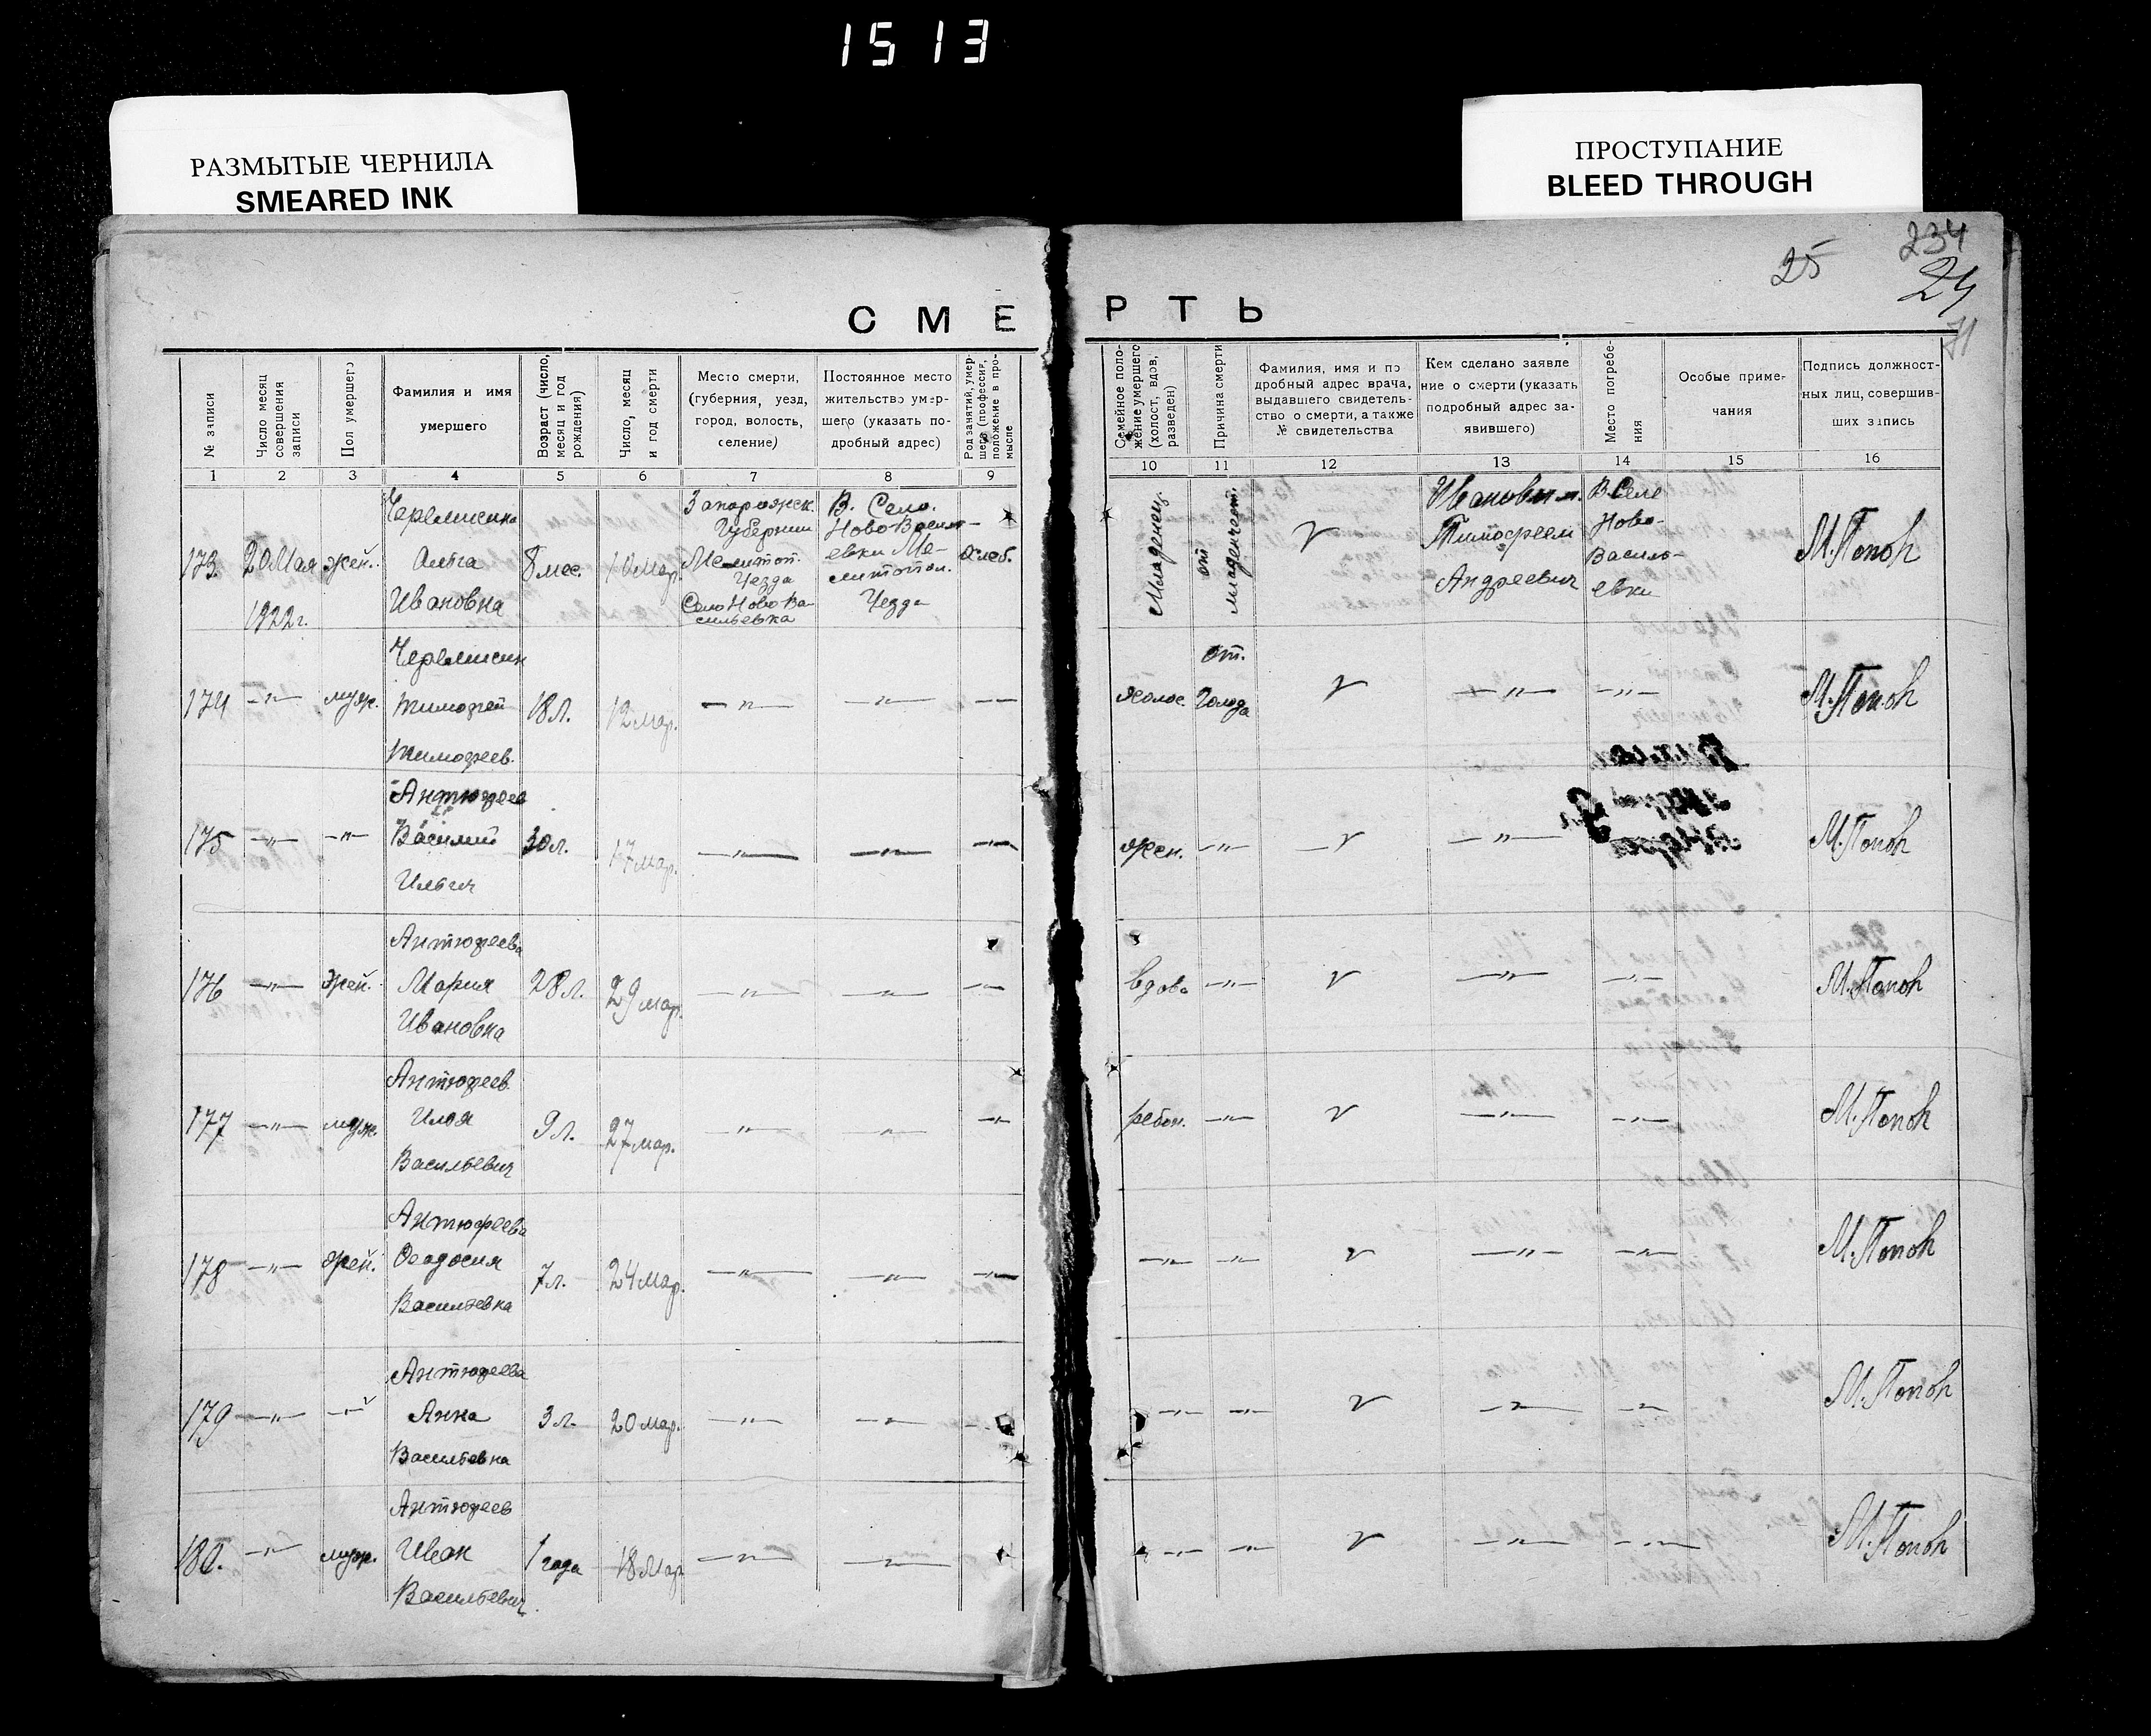 1513
РАЗМЫТЫЕ ЧЕРНИЛА
SMEARED INK
ПРОСТУПАНИЕ
BLEED THROUGH
25
234
24
71
СМЕРТЬ
№ записи
Число месяц совершения записи
Пол умершего
Фамилия и имя умершего
Возраст (число, месяц и год рождения)
Число, месяц и год смерти
Место смерти, (губерния, уезд, город, волость, селение)
Постоянное место жительство умершего (указать подробный адрес)
Род занятий, умершего (профессия, положение в промысле
Семейное положение умершего (холост, вдов, разведен)
Причина смерти
Фамилия, имя и подробный адрес врача, выдавшего свидетельство о смерти, а также № свидетельства
Кем сделано заявление о смерти (указать подробный адрес заявившего)
Место погребения
Особые примечания
Подпись должностных лиц, совершивших запись
1 2 3 4 5 6 7 8 9 10 11 12 13 14 15 16
173. 20 Мая 1922 г. жен. Ивановна 8 мес. 10 мар. Запорожск. Губернии Мелитоп. Уезда Село Ново Васильевка В. Село. Ново-Васильевки Мелитопол. Уезда Хлеб. Младенец от младенчест. V Тимофеем Андреевич В Селе Ново-Васильевки М. Попов
174 —"— муж. Тимофей Тимофеев. 18 л. 12 мар. —"— —"— —"— холос. от. голода V —"— —"— М. Попов
175 —"— —"— Василий Ильич 30 л. 17 мар. —"— —"— —"— жен. —"— V —"— М. Попов
176 —"— жен. Антюфеева Мария Ивановна 28 л. 29 мар. —"— —"— —"— вдова —"— V —"— —"— М. Попов
177 —"— муж. Антюфеев Илья Васильевич 9 л. 27 мар. —"— —"— —"— ребен. —"— V —"— —"— М. Попов
178 —"— жен. Антюфеева Феодосия Васильевна 7 л. 24 мар. —"— —"— —"— —"— —"— V —"— —"— М. Попов
179 —"— —"— Антюфеева Анна Васильевна 3 л. 20 мар. —"— —"— —"— —"— V —"— —"— М. Попов
180. —"— муж. Антюфеев Иван Васильевич 1 года 18 Мар —"— —"— —"— —"— V —"— —"— М. Попов